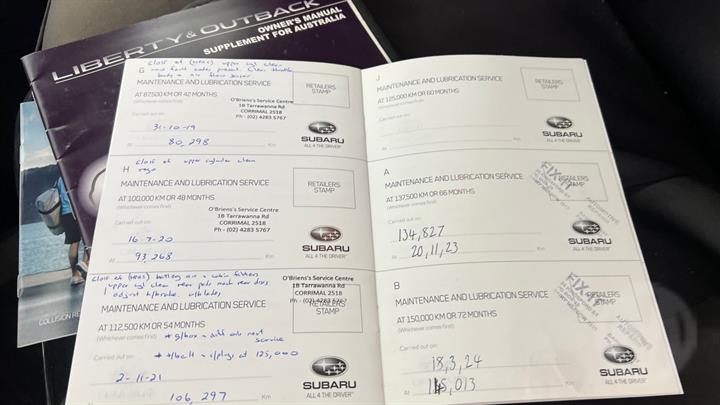 LIBERTY & OUTBACK
OWNER'S MANUAL
SUPPLEMENT FOR AUSTRALIA
COLLISION RE
G
upper cyl clean
clean throttle
MAINTENANCE AND LUBRICATION SERVICE
AT 87,500 KM OR 42 MONTHS
(Whichever comes first)
RETAILERS
STAMP
O'Briens's Service Centre
1B Tarrawanna Rd
CORRIMAL 2518
Ph - (02) 4283 5767
Carried out on:
31-10-19
At 80,298 Km
SUBARU
ALL 4 THE DRIVER
H
upper cylinder clean
MAINTENANCE AND LUBRICATION SERVICE
AT 100,000 KM OR 48 MONTHS
(Whichever comes first)
RETAILERS
STAMP
O'Briens's Service Centre
1B Tarrawanna Rd
CORRIMAL 2518
Ph - (02) 4283 5767
Carried out on:
16-7-20
At 93,268 Km
SUBARU
ALL 4 THE DRIVER
battery air + cabin filters
upper cyl clean rear pads mach rear discs
I adjust h/brake w/blades
O'Briens's Service Centre
1B Tarrawanna Rd
CORRIMAL 2518
Ph - (02) 4283 5767
MAINTENANCE AND LUBRICATION SERVICE
AT 112,500 KM OR 54 MONTHS
(Whichever comes first)
RETAILERS
STAMP
next
service
Carried out on:
at 125,000
2-11-21
At 106,297 Km
SUBARU
ALL 4 THE DRIVER
J
MAINTENANCE AND LUBRICATION SERVICE
AT 125,000 KM OR 60 MONTHS
(Whichever comes first)
RETAILERS
STAMP
Carried out on:
At Km
SUBARU
ALL 4 THE DRIVER
A
MAINTENANCE AND LUBRICATION SERVICE
AT 137,500 KM OR 66 MONTHS
(Whichever comes first)
RETAILERS
STAMP
FIX-IT
Carried out on:
134,827
20,11,23
At Km
SUBARU
ALL 4 THE DRIVER
B
MAINTENANCE AND LUBRICATION SERVICE
AT 150,000 KM OR 72 MONTHS
(Whichever comes first)
RETAILERS
STAMP
Carried out on:
18,3,24
At 145,013 Km
SUBARU
ALL 4 THE DRIVER